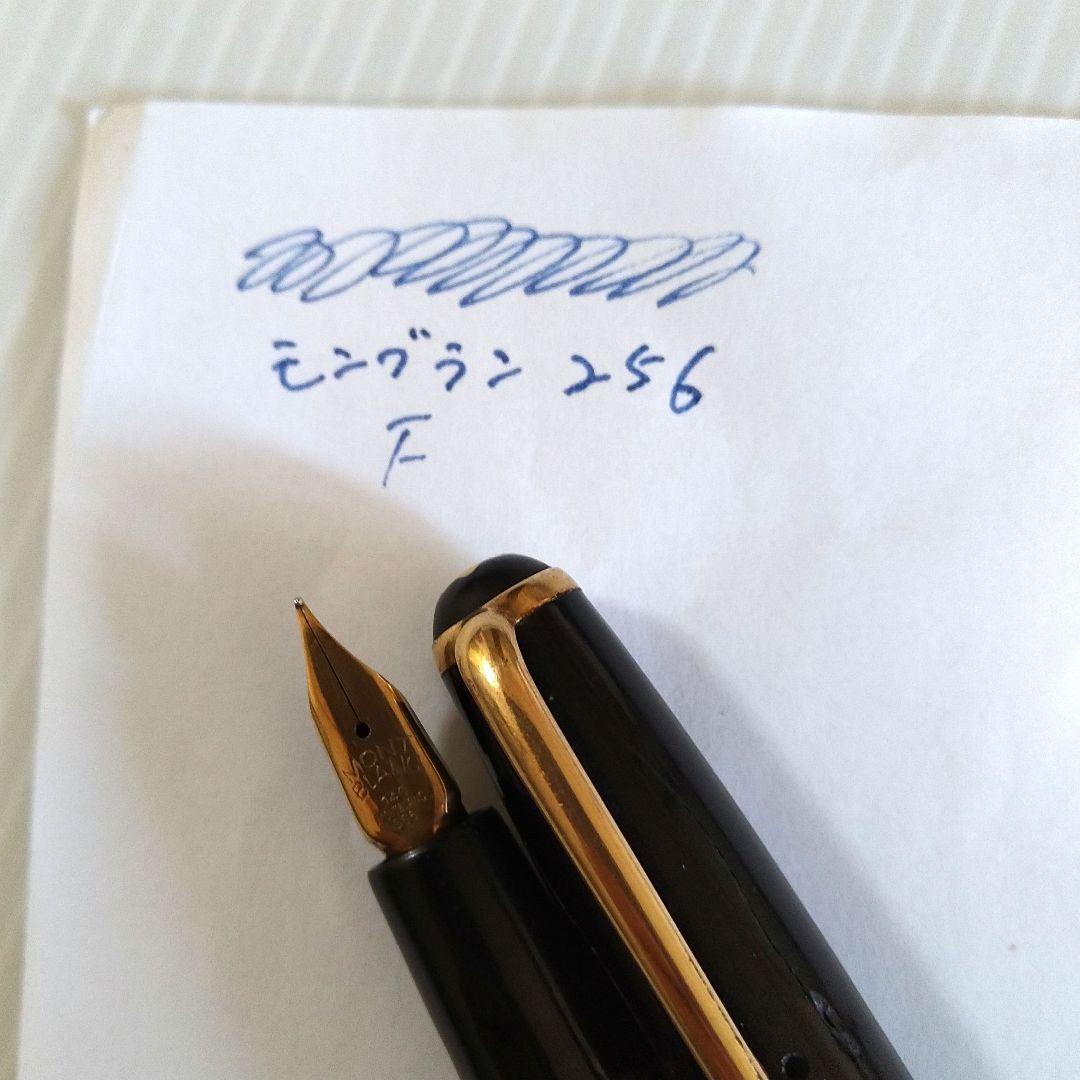 モンブラン 256
F
MONT
BLANC